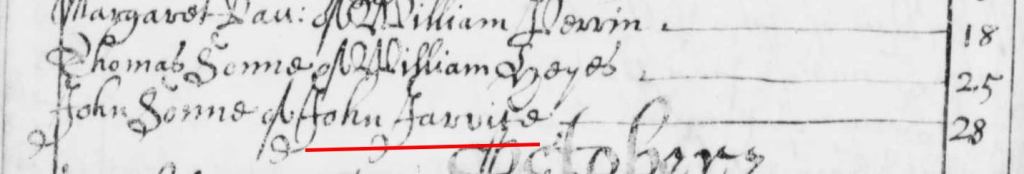 Margaret Dau: of William Perrin 18
Thomas Sonne of William Heyes 25
John Sonne of John Jarvise 28
October